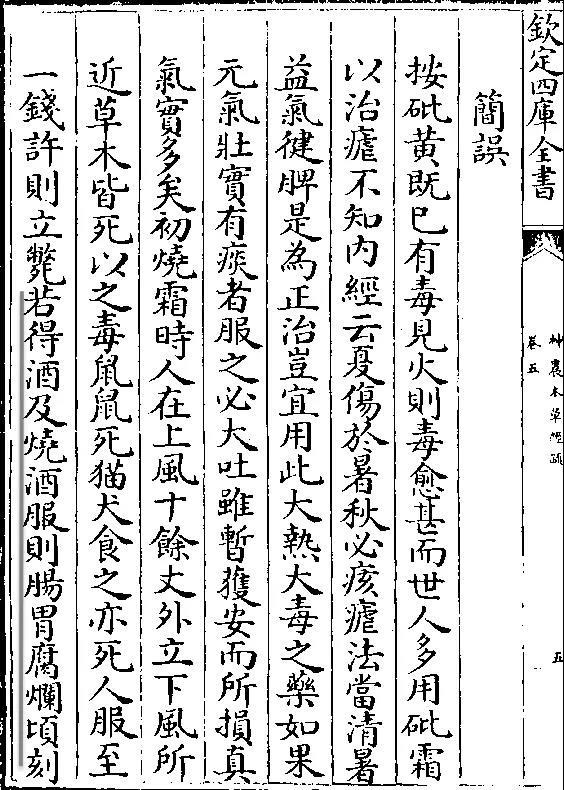 欽定四庫全書
神農本草經疏
卷五
五
簡誤
按砒黃既巳有毒見火則毒愈甚而世人多用砒霜
以治瘧不知内經云夏傷於暑秋必痎瘧法當清暑
益氣健脾是為正治豈宜用此大熱大毒之藥如果
元氣壯實有痰者服之必大吐雖暫獲安而所損真
氣實多矣初燒霜時人在上風十餘丈外立下風所
近草木皆死以之毒鼠鼠死猫犬食之亦死人服至
一錢許則立斃若得酒及燒酒服則腸胃腐爛頃刻